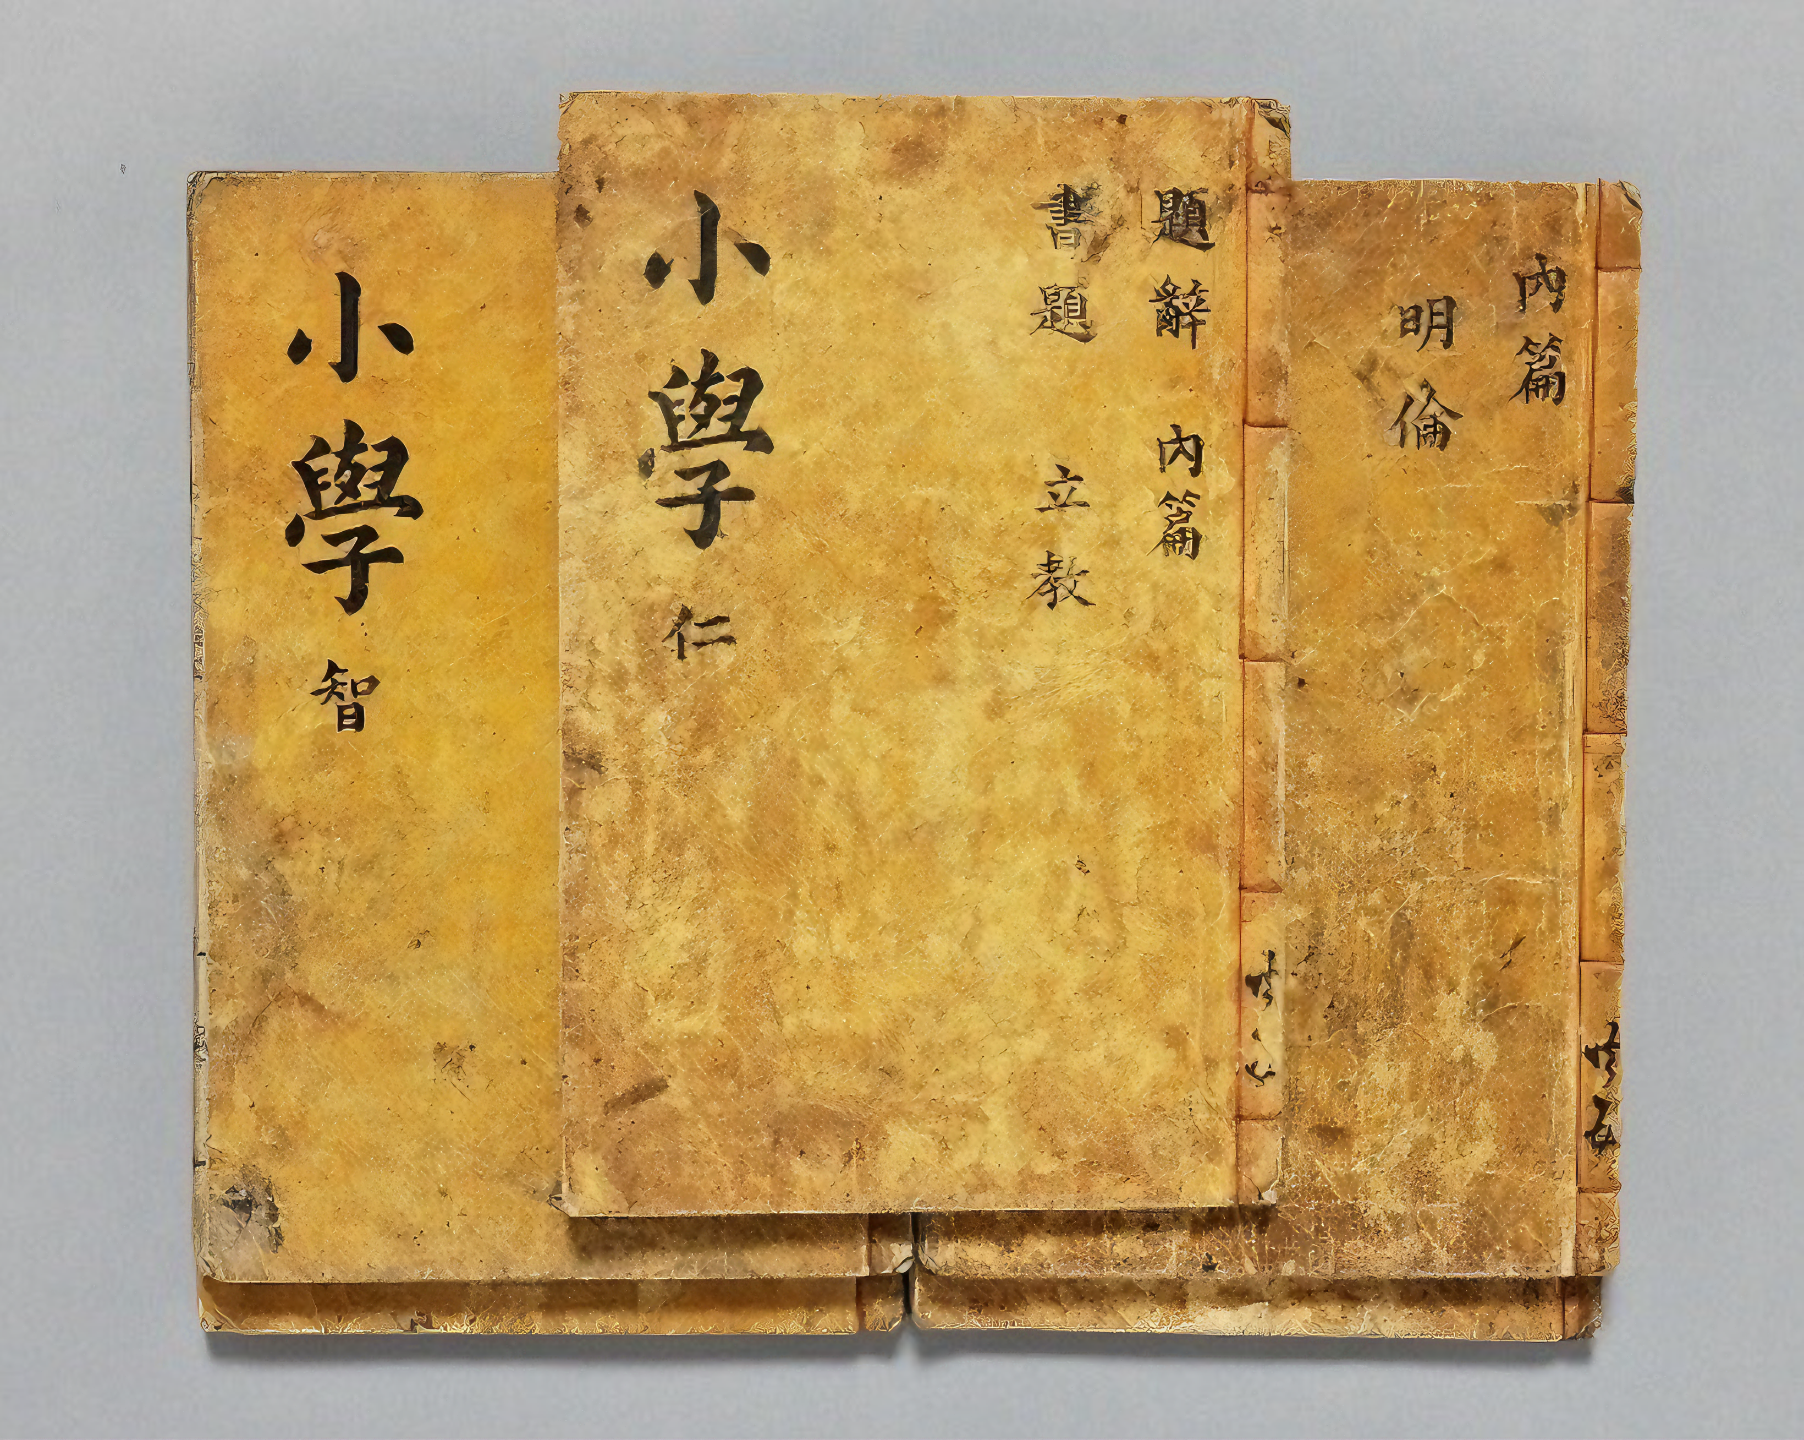 內篇
明倫
共五
題辭 內篇
書題 立教
小學 仁
小學 智